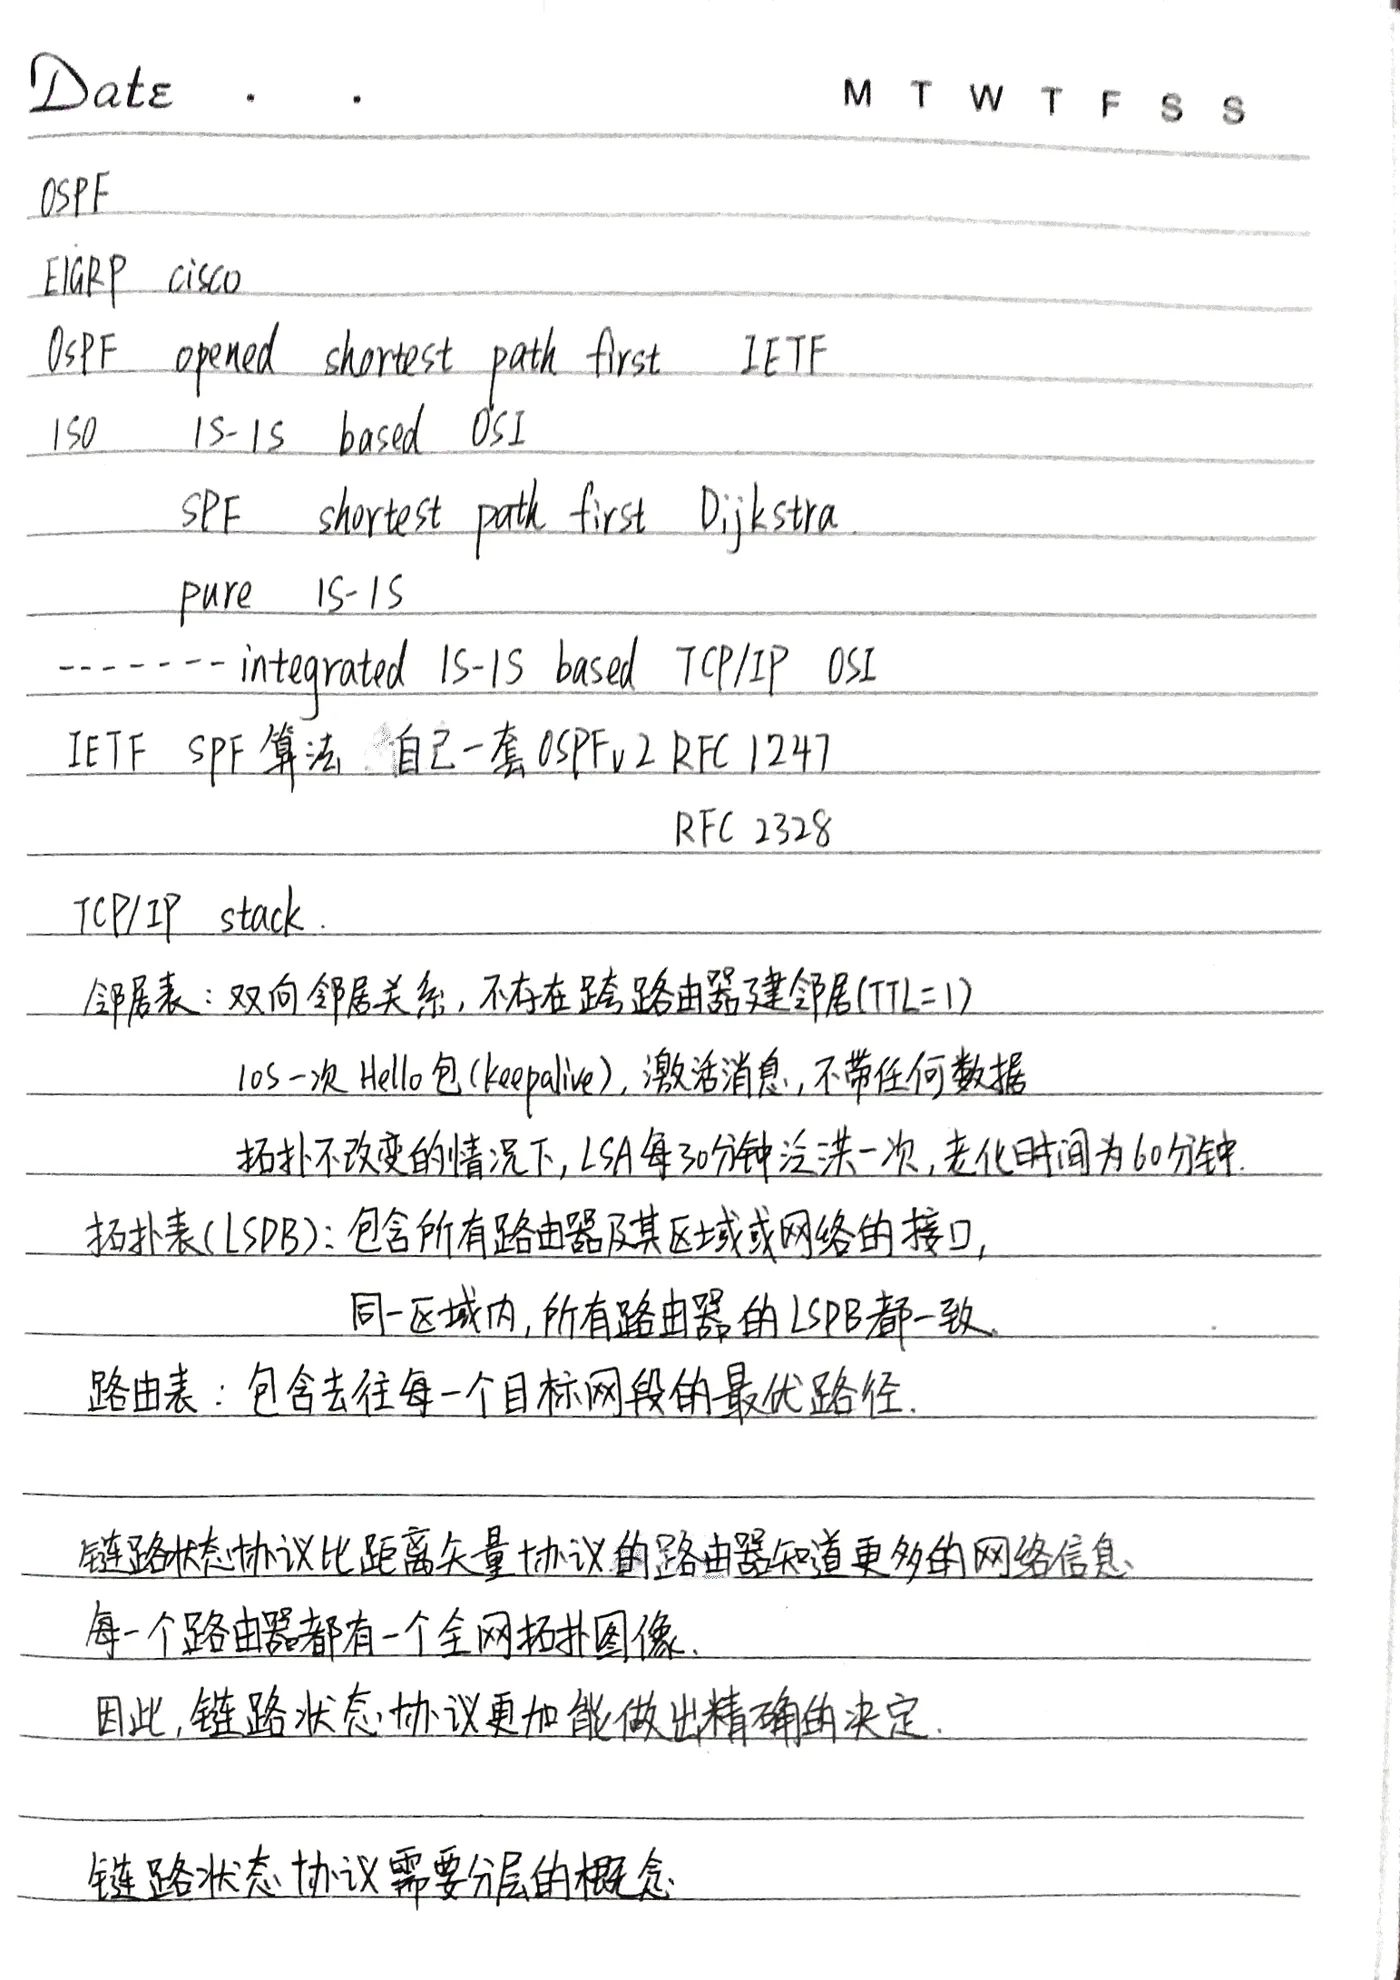 Date . .
M T W T F S S
OSPF
EIGRP cisco
OSPF opened shortest path first IETF
ISO IS-IS based OSI
SPF shortest path first Dijkstra.
pure IS-IS
------- integrated IS-IS based TCP/IP OSI
IETF SPF算法 自己一套OSPFv2 RFC 1247
RFC 2328
TCP/IP stack.
邻居表：双向邻居关系，不存在跨路由器建邻居(TTL=1)
10S一次Hello包(keepalive)，激活消息，不带任何数据
拓扑不改变的情况下，LSA每30分钟泛洪一次，老化时间为60分钟.
拓扑表(LSDB)：包含所有路由器及其区域或网络的接口，
同一区域内，所有路由器的LSDB都一致.
路由表：包含去往每一个目标网段的最优路径.
链路状态协议比距离矢量协议的路由器知道更多的网络信息.
每一个路由器都有一个全网拓扑图像.
因此，链路状态协议更加能做出精确的决定.
链路状态协议需要分层的概念